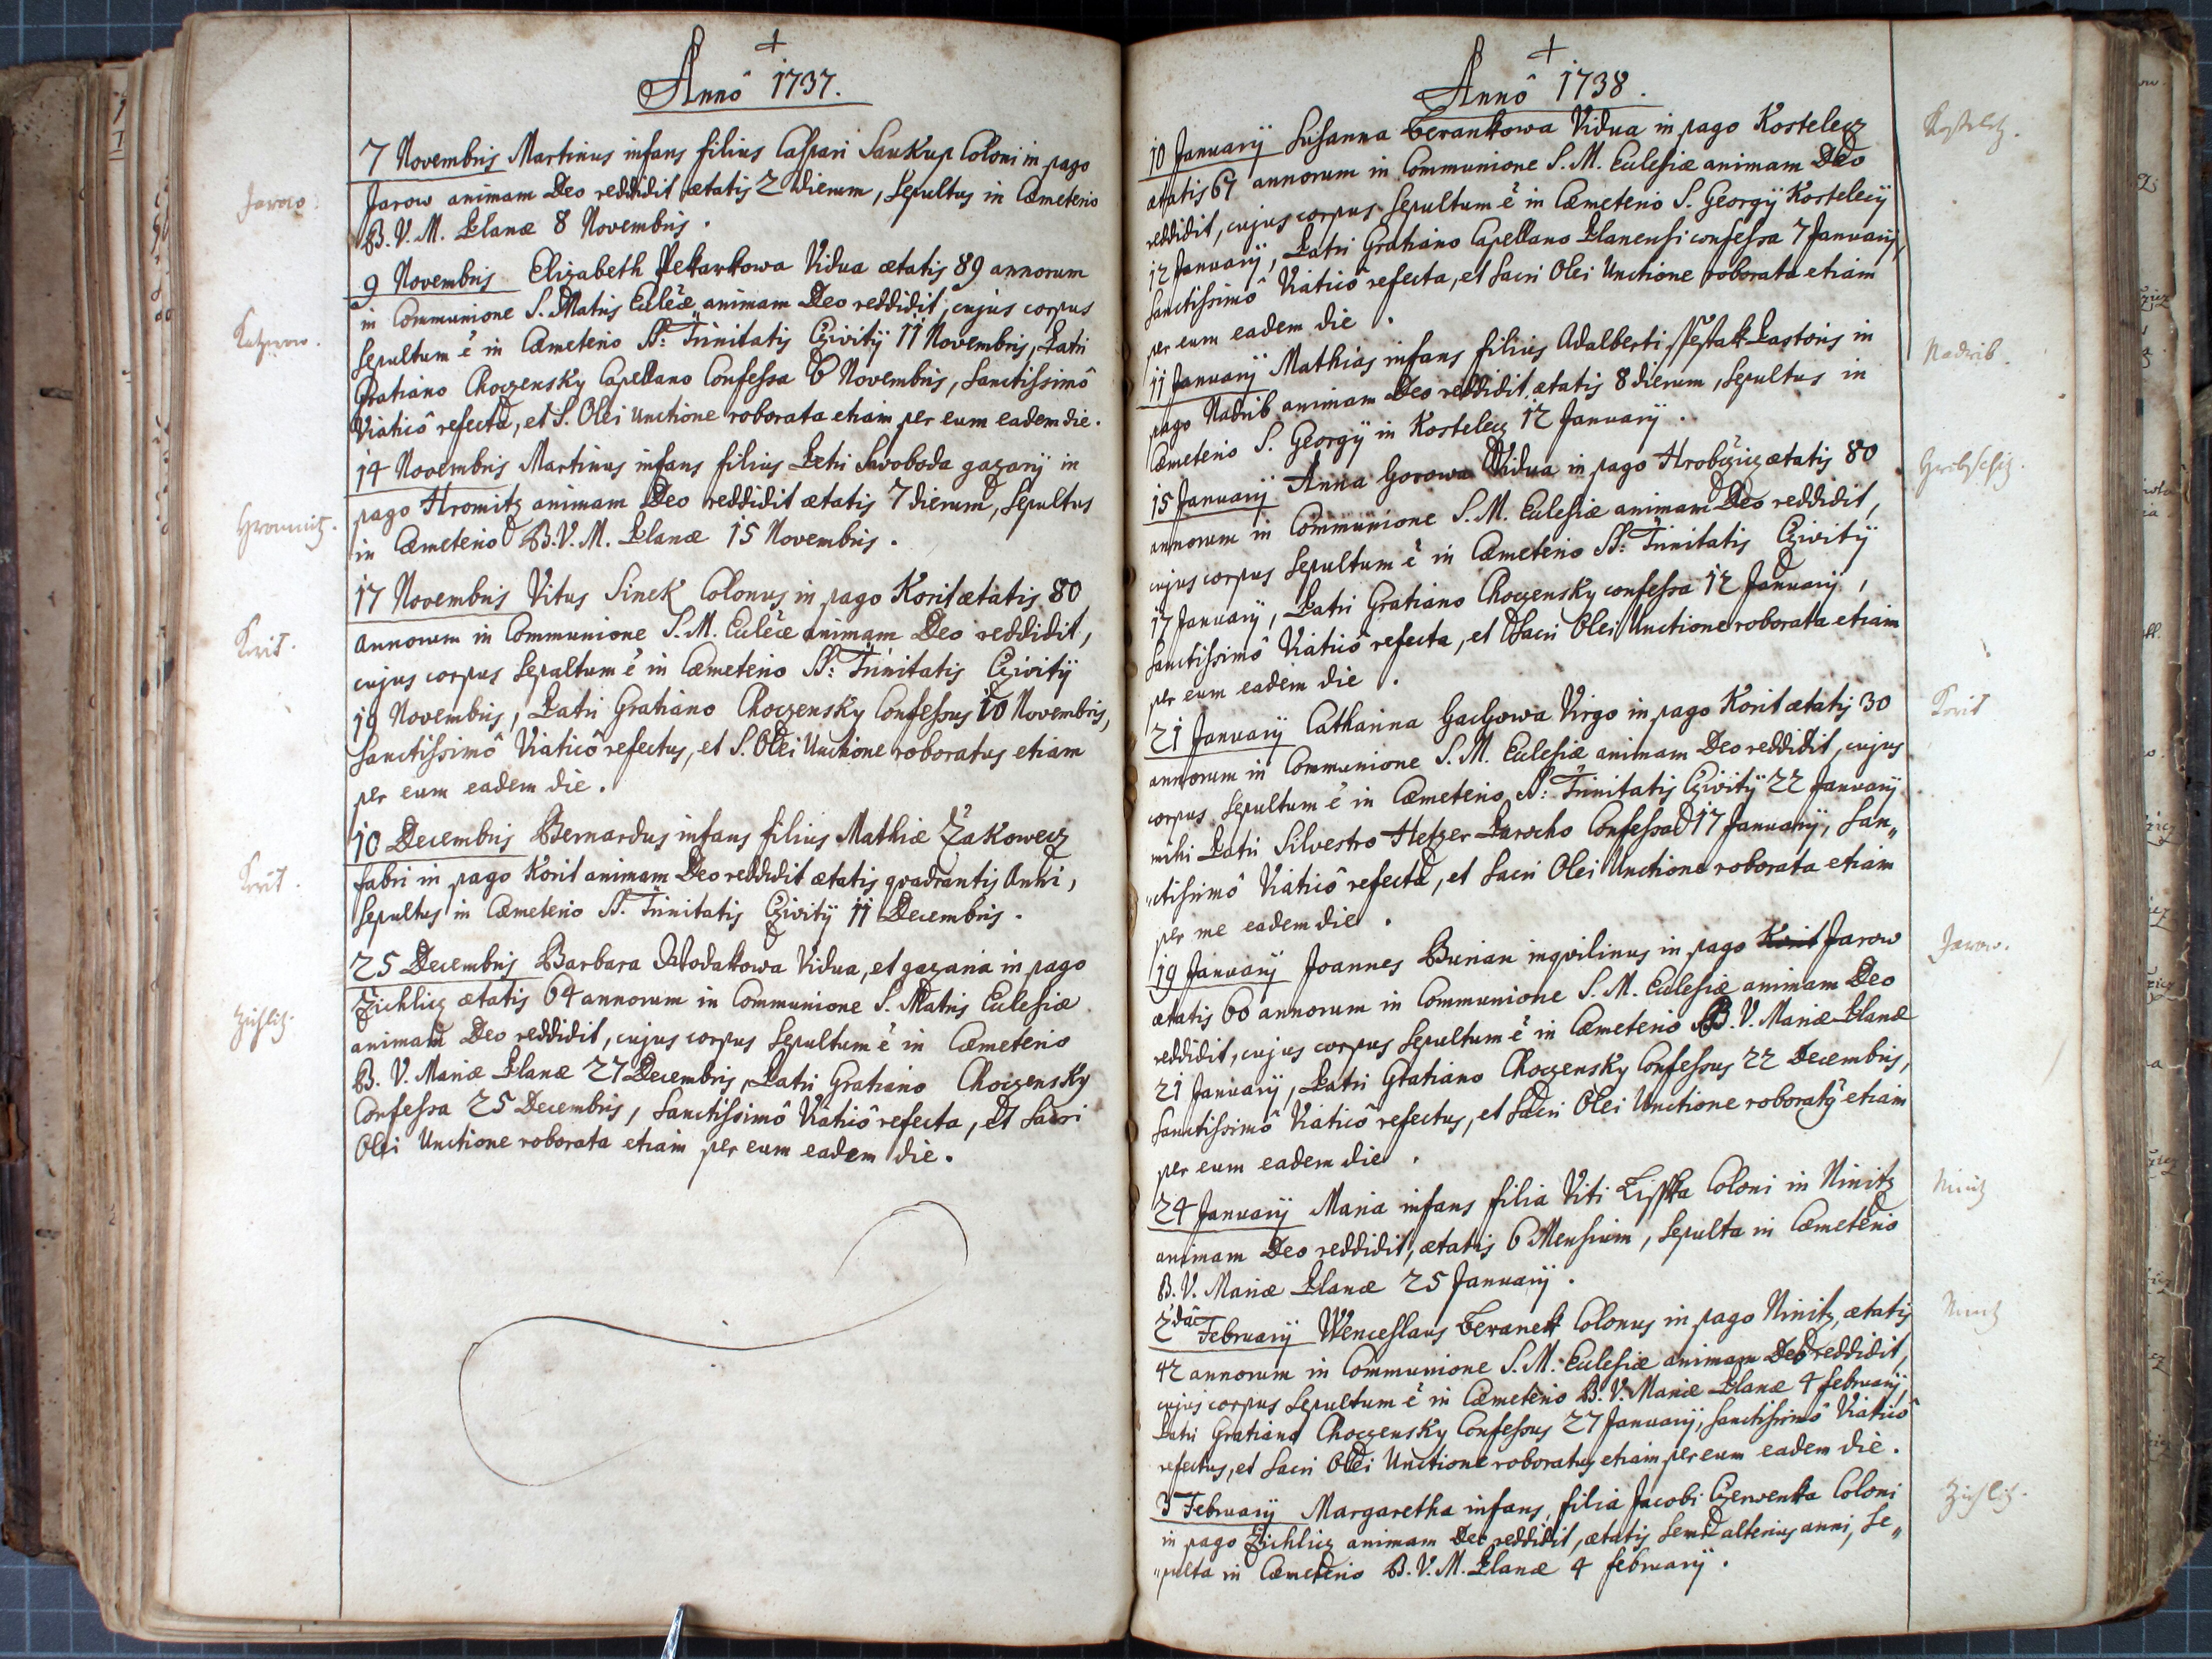 Annô 1737.
7 Novembris Martinus infans filius Caspari Saukup Coloni in pago
Jarow animam Deo reddidit ætatis 2 dierum, sepultus in Cæmeterio
Jarow.
B. V. M. Planæ 8 Novembris.
9 Novembris Elizabeth Pekarkowa Vidua ætatis 89 annorum
in Communione S. Matris Eccleæ animam Deo reddidit, cujus corpus
sepultum ê in Cæmeterio SS: Trinitatis Cziwitÿ 11 Novembris, Patri
Gratiano Choczensky Capellano Confessa 6 Novembris, Sanctissimô
Viaticô refecta, et S. Olei Unctione roborata etiam per eum eadem die.
14 Novembris Martinus infans filius Petri Swoboda gazarÿ in
pago Hromitz animam Deo reddidit ætatis 7 dierum, sepultus
Hromitz.
in Cæmeterio B. V. M. Planæ 15 Novembris.
17 Novembris Vitus Sinek Colonus in pago Korit ætatis 80
annorum in Communione S. M. Eccleæ animam Deo reddidit,
Korit.
cujus corpus sepultum ê in Cæmeterio SS: Trinitatis Cziwitÿ
19 Novembris, Patri Gratiano Choczensky Confessus 10 Novembris,
Sanctissimô Viaticô refectus, et S. Olei Unctione roboratus etiam
per eum eadem die.
10 Decembris Bernardus infans filius Mathiæ Žakowecz
fabri in pago Korit animam Deo reddidit ætatis quadrantis Anni,
Korit.
sepultus in Cæmeterio SS. Trinitatis Cziwitÿ 11 Decembris.
25 Decembris Barbara Wodakowa Vidua, et gazaria in pago
Zichlicz ætatis 64 annorum in Communione S. Matris Ecclesiæ
Zichlitz.
animam Deo reddidit, cujus corpus sepultum ê in Cæmeterio
B. V. Mariæ Planæ 27 Decembris, Patri Gratiano Choczensky
Confessa 25 Decembris, Sanctissimô Viaticô refecta, et Sacri
Olei Unctione roborata etiam per eum eadem die.
Annô 1738.
10 Januarÿ Susanna Berankowa Vidua in pago Kostelecz
Kostelitz.
ætatis 67 annorum in Communione S. M. Ecclesiæ animam Deo
reddidit, cujus corpus sepultum ê in Cæmeterio S. Georgÿ Kostelecÿ
12 Januarÿ, Patri Gratiano Capellano Planensi confessa 7 Januarÿ,
Sanctissimô Viaticô refecta, et Sacri Olei Unctione roborata etiam
per eum eadem die.
11 Januarÿ Mathias infans filius Adalberti Pastoris in
Nadrib.
pago Nadrib animam Deo reddidit ætatis 8 dierum, sepultus in
Cæmeterio S. Georgÿ in Kostelecz 12 Januarÿ.
15 Januarÿ Anna Gorowa Vidua in pago Hrobczicz ætatis 80
annorum in Communione S. M. Ecclesiæ animam Deo reddidit,
cujus corpus sepultum ê in Cæmeterio SS: Trinitatis Cziwitÿ
17 Januarÿ, Patri Gratiano Choczensky confessa 12 Januarÿ,
Sanctissimô Viaticô refecta, et Sacri Olei Unctione roborata etiam
per eum eadem die.
21 Januarÿ Catharina Gachowa Virgo in pago Korit ætatis 30
Korit
annorum in Communione S. M. Ecclesiæ animam Deo reddidit, cujus
corpus sepultum ê in Cæmeterio SS: Trinitatis Cziwitÿ 22 Januarÿ
mihi Patri Silvestro Hetzer Parocho Confessa 17 Januarÿ, San„
„ctissimô Viaticô refecta, et Sacri Olei Unctione roborata etiam
per me eadem die.
19 Januarÿ Joannes Burian inquilinus in pago Korit Jarow
Jarow.
ætatis 60 annorum in Communione S. M. Ecclesiæ animam Deo
reddidit, cujus corpus sepultum ê in Cæmeterio B. V. Mariæ Planæ
21 Januarÿ, Patri Gratiano Choczensky Confessus 22 Decembris,
Sanctissimô Viaticô refectus, et Sacri Olei Unctione roboratÿ etiam
per eum eadem die.
24 Januarÿ Maria infans filia Viti Lisska Coloni in Ninitz
Ninitz
animam Deo reddidit, ætatis 6 Mensium, sepulta in Cæmeterio
B. V. Mariæ Planæ 25 Januarÿ.
2dâ Februarÿ Wenceslaus Beranek Colonus in pago Ninitz, ætatis
Ninitz
42 annorum in Communione S. M. Ecclesiæ animam Deo reddidit,
cujus corpus sepultum ê in Cæmeterio B. V. Mariæ Planæ 4 februarÿ,
Patri Gratiano Choczensky Confessus 27 Januarÿ, Sanctissimô Viaticô
refectus, et Sacri Olei Unctione roboratus etiam per eum eadem die.
3 Februarÿ Margaretha infans, filia Jacobi Czerwenka Coloni
Zichlitz.
in pago Zichlicz animam Deo reddidit, ætatis semi alterius anni, se„
„pulta in Cæmeterio B. V. M. Planæ 4 februarÿ.